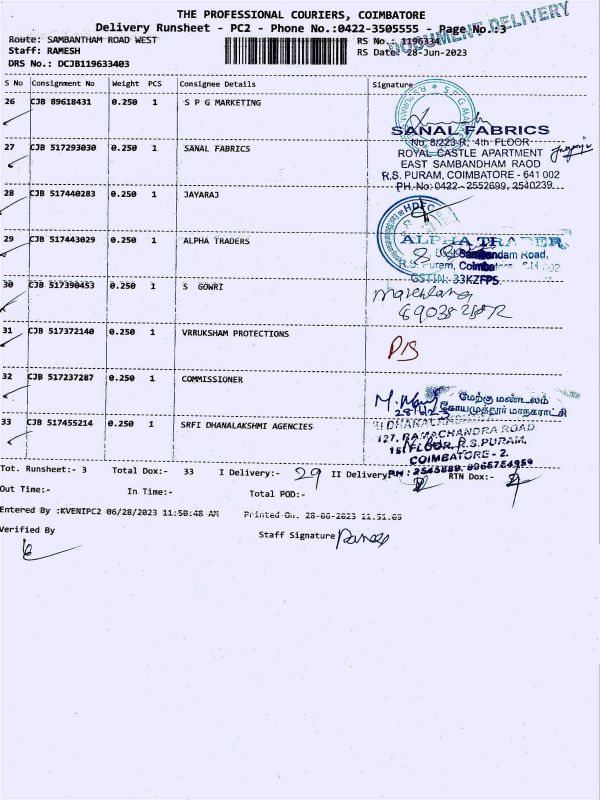 THE PROFESSIONAL COURIERS, COIMBATORE
Delivery Runsheet - PC2 - Phone No.:0422-3505555 - Page No.:3
DOCUMENT DELIVERY
Route: SAMBANTHAM ROAD WEST
RS No.: 1196334
Staff: RAMESH
RS Date: 28-Jun-2023
DRS No.: DCJB119633403
S No Consignment No Weight PCS Consignee Details Signature
26 CJB 89618431 0.250 1 S P G MARKETING
27 CJB 517293030 0.250 1 SANAL FABRICS
SANAL FABRICS
No. 8/223-R, 4th FLOOR
ROYAL CASTLE APARTMENT
EAST SAMBANDHAM RAOD
R.S. PURAM, COIMBATORE - 641 002
PH. No: 0422 - 2552699, 2540239
28 CJB 517440283 0.250 1 JAYARAJ
HDFC
29 CJB 517443029 0.250 1 ALPHA TRADERS
ALPHA TRADER
Sambandam Road,
R.S. Puram, Coimbatore
GSTIN: 33KZFPS
30 CJB 517390453 0.250 1 S GOWRI
31 CJB 517372140 0.250 1 VRRUKSHAM PROTECTIONS
D/S
32 CJB 517237287 0.250 1 COMMISSIONER
மேற்கு மண்டலம்
கோயமுத்தூர் மாநகராட்சி
33 CJB 517455214 0.250 1 SRFI DHANALAKSHMI AGENCIES
127, RAMACHANDRA ROAD
1st FLOOR, R.S.PURAM,
COIMBATORE - 2.
Tot. Runsheet:- 3 Total Dox:- 33 I Delivery:- 29 II Delivery:- RTN Dox:-
Out Time:- In Time:- Total POD:-
Entered By :KVENIPC2 06/28/2023 11:50:48 AM Printed On. 28-06-2023 11.51.09
Verified By
Staff Signature